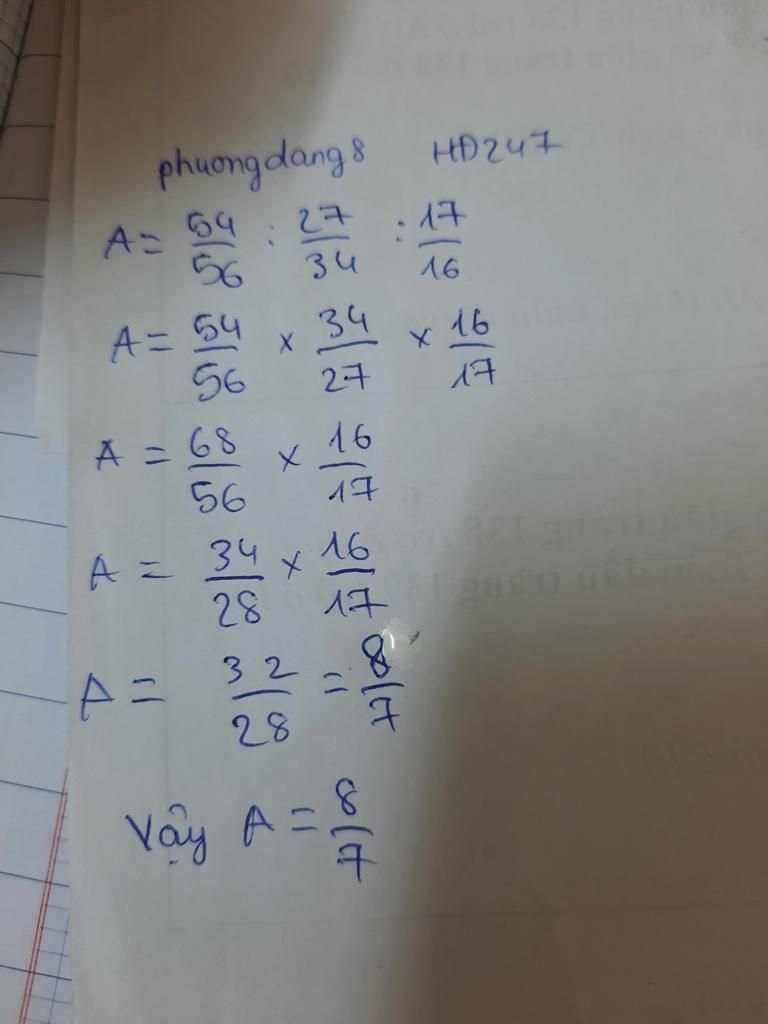 phuongdang8 HD247
A = 54/56 : 27/34 : 17/16
A = 54/56 x 34/27 x 16/17
A = 68/56 x 16/17
A = 34/28 x 16/17
A = 32/28 = 8/7
Vậy A = 8/7